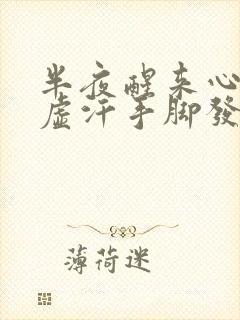 半夜醒来心
虚汗手脚發
薄荷迷